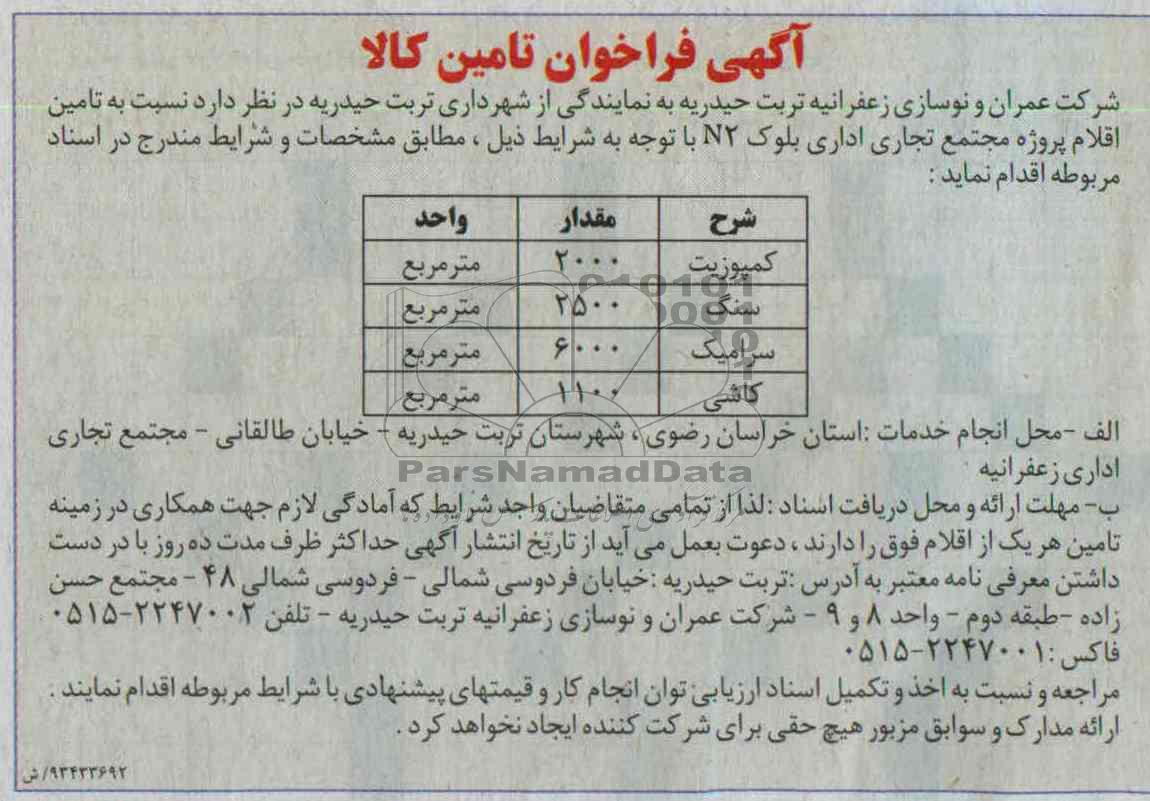 آگهی فراخوان تامین کالا
شرکت عمران و نوسازی زعفرانیه تربت حیدریه به نمایندگی از شهرداری تربت حیدریه در نظر دارد نسبت به تامین
اقلام پروژه مجتمع تجاری اداری بلوک N۲ با توجه به شرایط ذیل ، مطابق مشخصات و شرایط مندرج در اسناد
مربوطه اقدام نماید :
شرح مقدار واحد
کمپوزیت ۲۰۰۰ مترمربع
سنگ ۲۵۰۰ مترمربع
سرامیک ۶۰۰۰ مترمربع
کاشی ۱۱۰۰ مترمربع
الف -محل انجام خدمات :استان خراسان رضوی ، شهرستان تربت حیدریه - خیابان طالقانی - مجتمع تجاری
اداری زعفرانیه
ParsNamadData
ب- مهلت ارائه و محل دریافت اسناد :لذا از تمامی متقاضیان واجد شرایط که آمادگی لازم جهت همکاری در زمینه
تامین هر یک از اقلام فوق را دارند ، دعوت بعمل می آید از تاریخ انتشار آگهی حداکثر ظرف مدت ده روز با در دست
داشتن معرفی نامه معتبر به آدرس :تربت حیدریه :خیابان فردوسی شمالی - فردوسی شمالی ۴۸ - مجتمع حسن
زاده -طبقه دوم - واحد ۸ و ۹ - شرکت عمران و نوسازی زعفرانیه تربت حیدریه - تلفن ۲۲۴۷۰۰۲-۰۵۱۵
فاکس :۲۲۴۷۰۰۱-۰۵۱۵
مراجعه و نسبت به اخذ و تکمیل اسناد ارزیابی توان انجام کار و قیمتهای پیشنهادی با شرایط مربوطه اقدام نمایند .
ارائه مدارک و سوابق مزبور هیچ حقی برای شرکت کننده ایجاد نخواهد کرد .
۹۳۴۳۳۶۹۲/ش